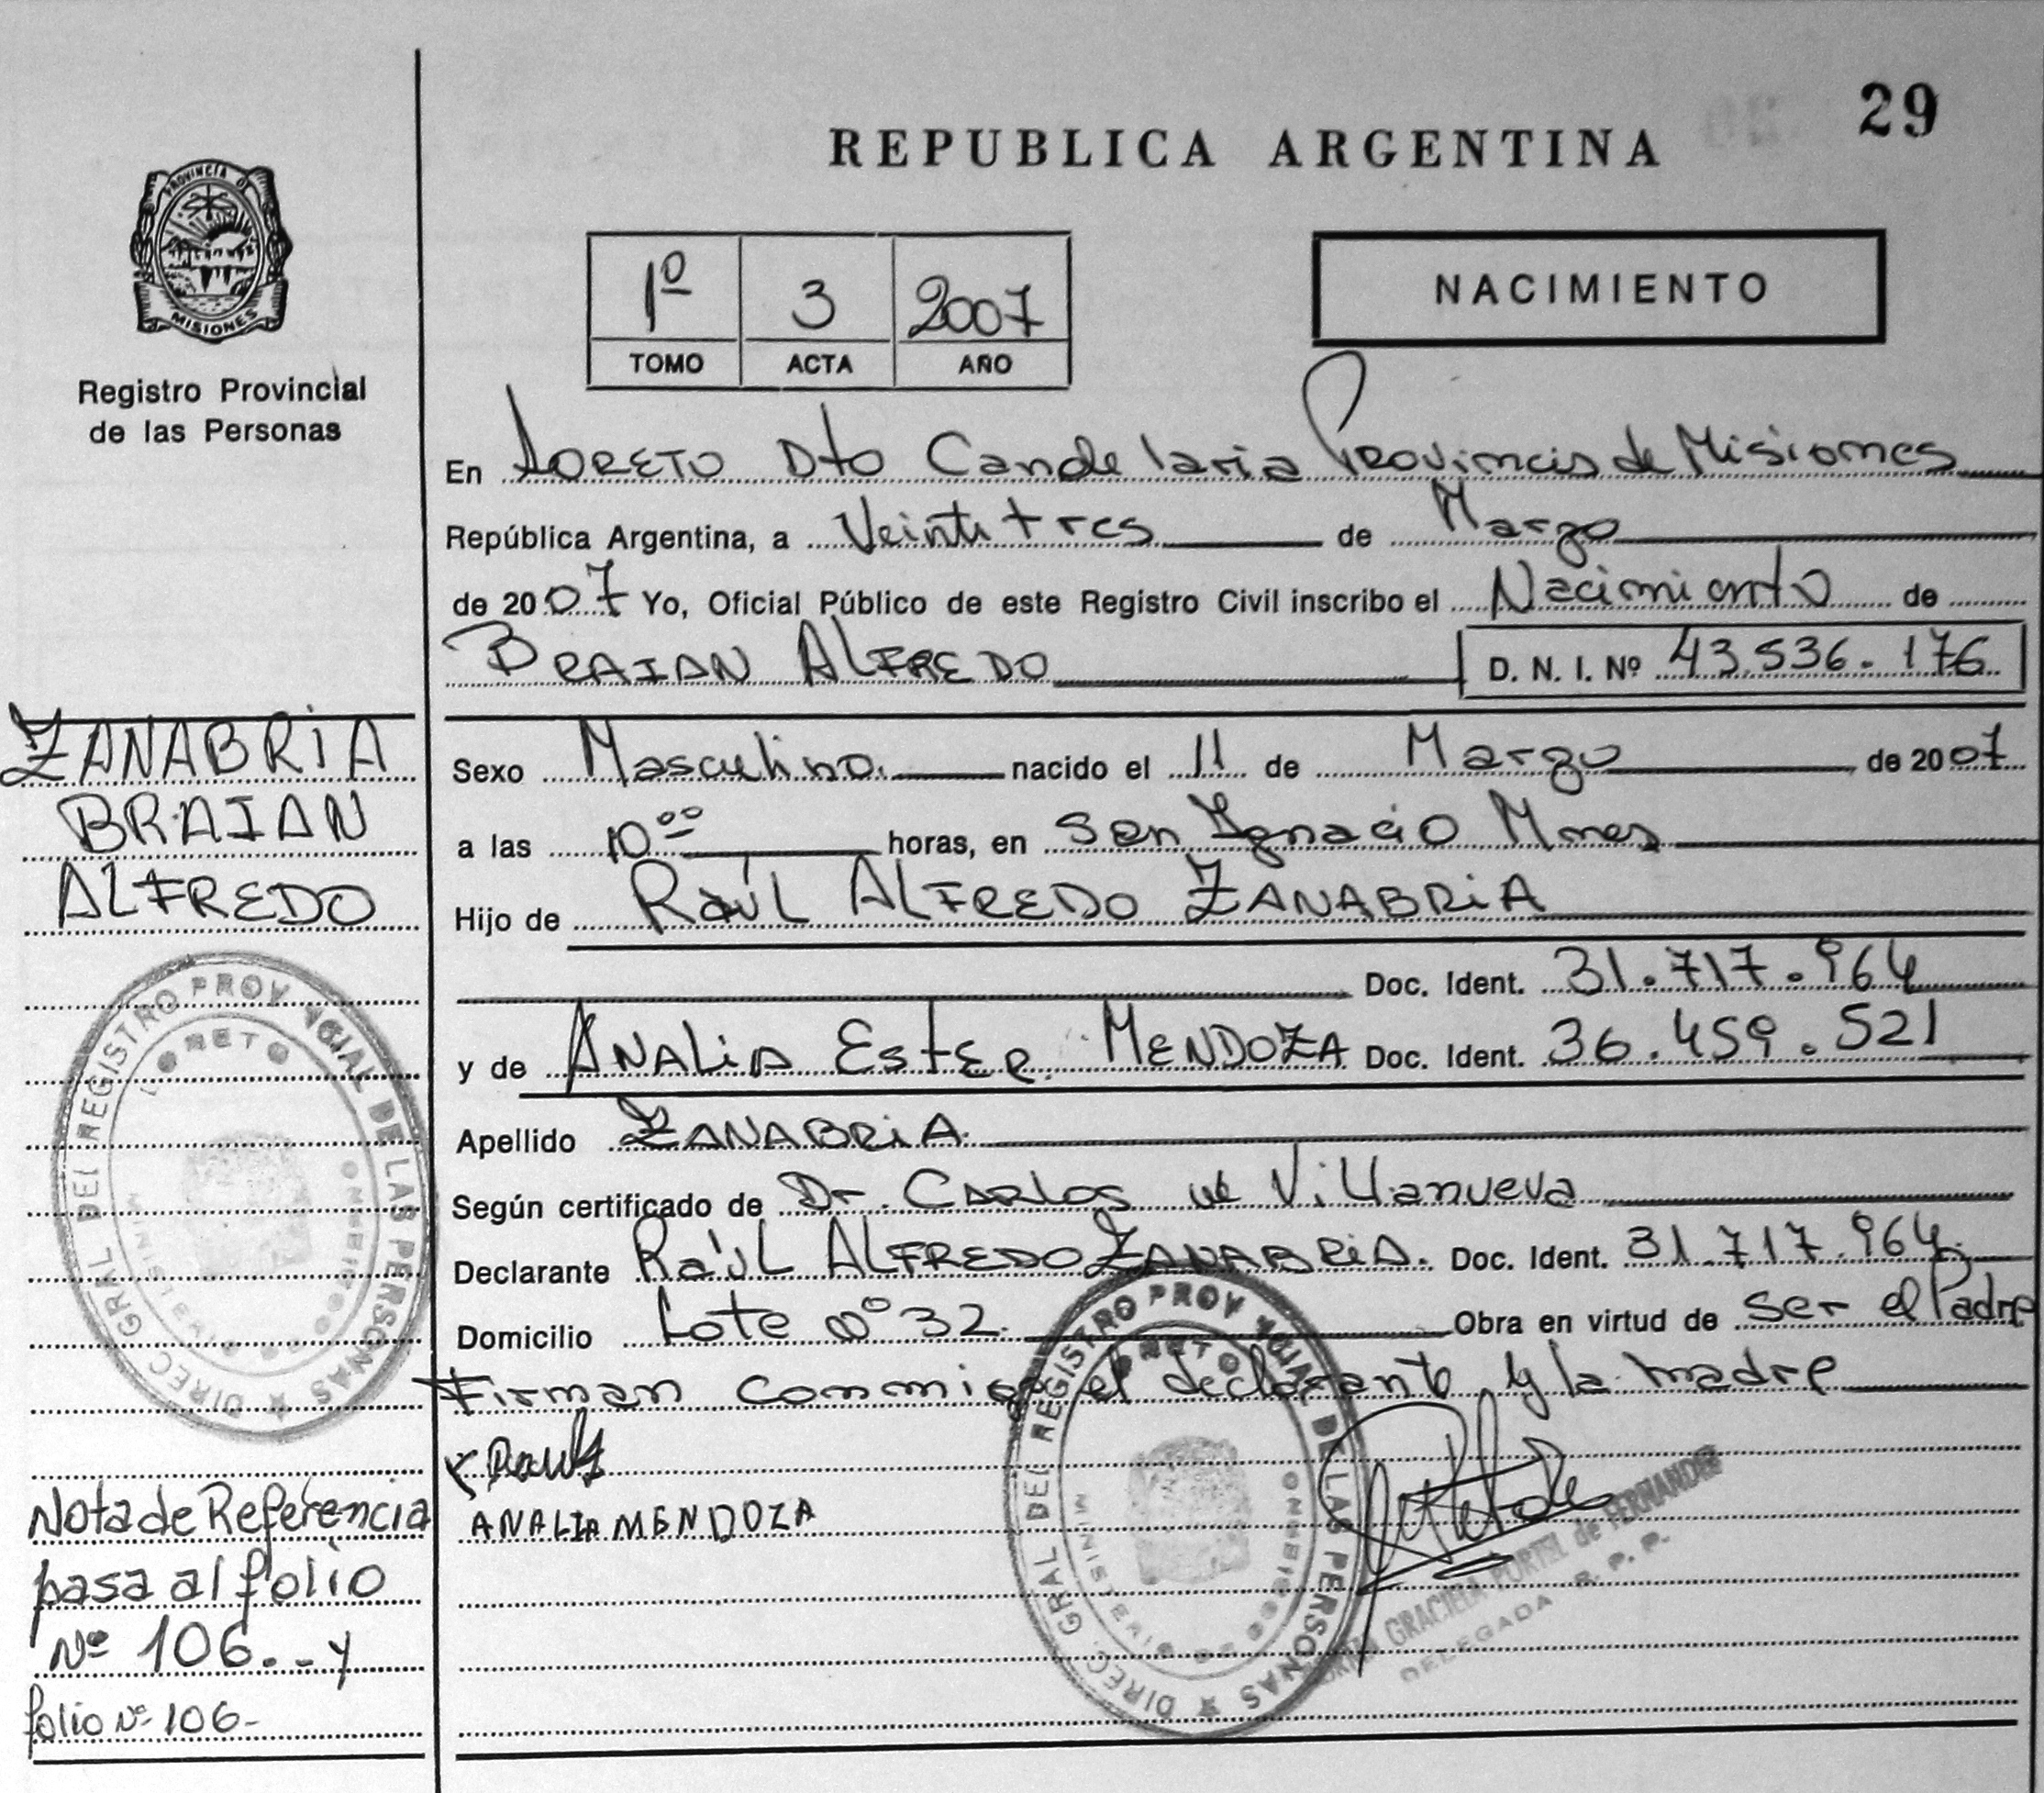 29
REPUBLICA ARGENTINA
PROVINCIA DE
MISIONES
Registro Provincial
de las Personas
1º 3 2007
TOMO ACTA AÑO
NACIMIENTO
En LORETO Dto Candelaria Provincia de Misiones
República Argentina, a Veintitres de Marzo
de 2007 Yo, Oficial Público de este Registro Civil inscribo el Nacimiento de
BRAIAN ALFREDO D. N. I. Nº 43.536.176
ZANABRIA
BRAIAN
ALFREDO
Sexo Masculino. nacido el 11 de Marzo de 2007
a las 10ºº horas, en San Ignacio Mnes
Hijo de RAÚL ALFREDO ZANABRIA
Doc. Ident. 31.717.964
y de ANALIA ESTER MENDOZA Doc. Ident. 36.459.521
Apellido ZANABRIA
Según certificado de Dr. CARLOS Villanueva
Declarante RAÚL ALFREDO ZANABRIA. Doc. Ident. 31.717.964
Domicilio Lote nº 32 Obra en virtud de ser el Padre
Firman conmigo el declarante y la madre
ANALIA MENDOZA
DIREC. GRAL DEL REGISTRO PROVINCIAL DE LAS PERSONAS
LORETO
MISIONES
DIREC. GRAL DEL REGISTRO PROVINCIAL DE LAS PERSONAS
GRACIELA PORTEL de FERNANDEZ
DELEGADA R. P. P.
Nota de Referencia
pasa al folio
Nº 106.-- y
folio Nº 106-